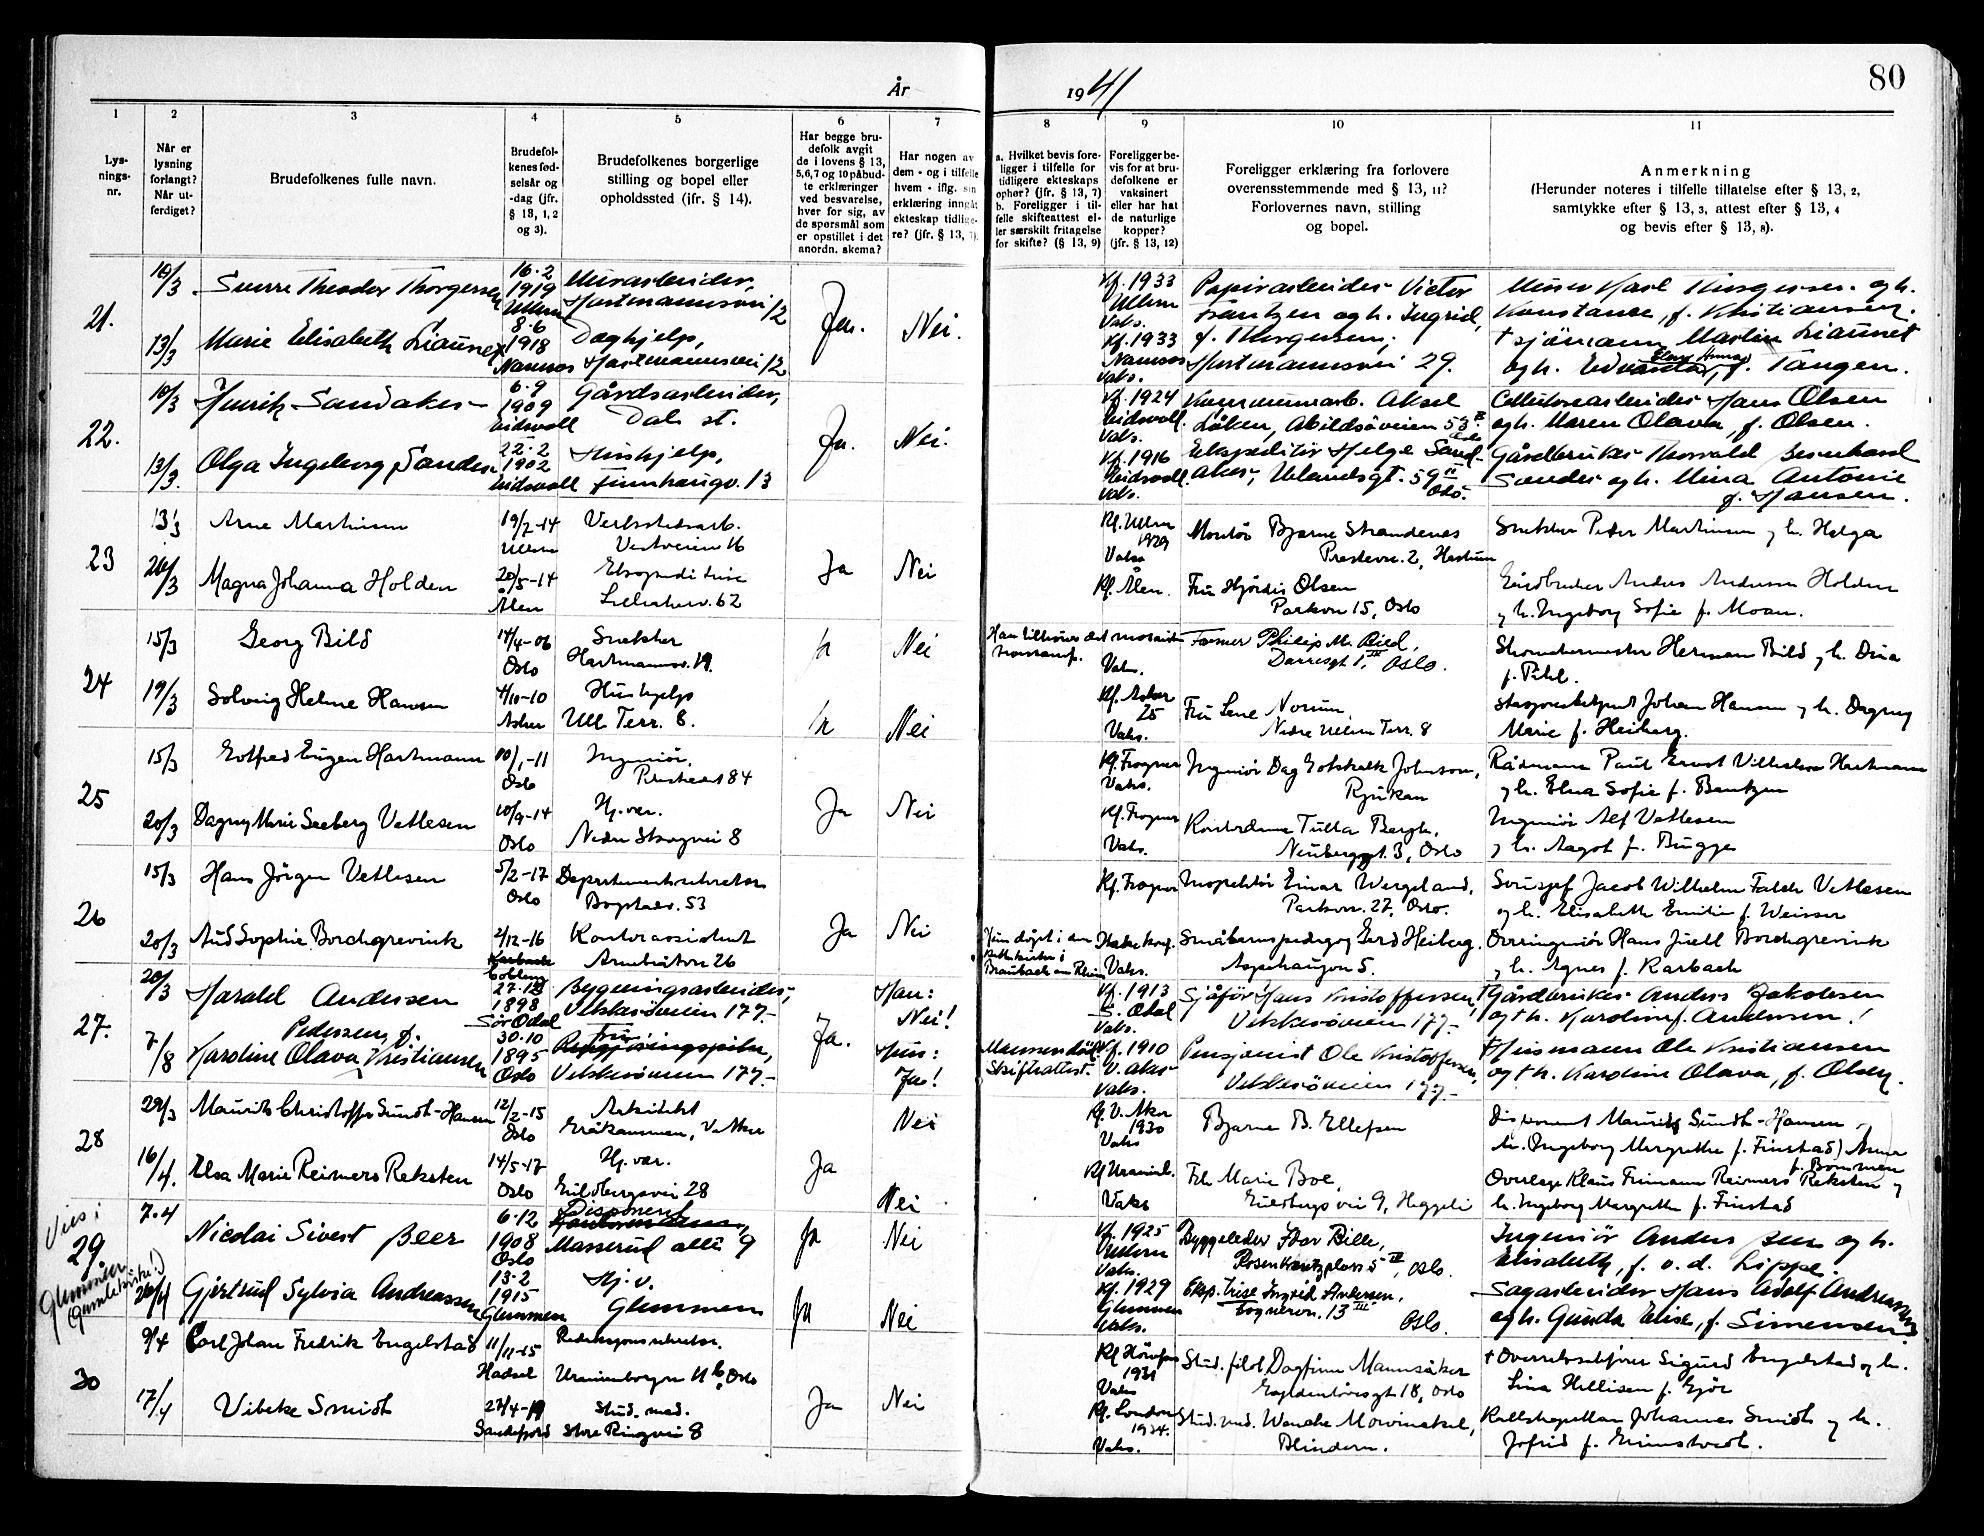 År
1941
80
1
2
3
4
5
6
7
8
9
10
11
Lys-
nings-
nr.
Når er
lysning
forlangt?
Når ut-
ferdiget?
Brudefolkenes fulle navn.
Brudefol-
kenes fød-
selsår og
-dag (jfr.
§ 13, 1, 2
og 3).
Brudefolkenes borgerlige
stilling og bopel eller
opholdssted (jfr. § 14).
Har begge bru-
defolk avgit
de i lovens § 13,
5,6,7 og 10 påbud-
te erklæringer
ved besvarelse,
hver for sig, av
de spørsmål som
er opstillet i det
anordn. skema?
Har nogen av
dem - og i tilfelle
hvem - iflg. sin
erklæring inngåt
ekteskap tidlige-
re? (jfr. § 13, 7).
a. Hvilket bevis fore-
ligger i tilfelle for
tidligere ekteskaps
ophør? (jfr. § 13, 7)
b. Foreligger i til-
felle skifteattest el-
ler særskilt fritagelse
for skifte? (§ 13, 9)
Foreligger be-
vis for at bru-
defolkene er
vaksinert
eller har hat
de naturlige
kopper?
(jfr. § 13, 12)
Foreligger erklæring fra forlovere
overensstemmende med § 13, 11?
Forlovernes navn, stilling
og bopel.
Anmerkning
(Herunder noteres i tilfelle tillatelse efter § 13, 2,
samtykke efter § 13, 3, attest efter § 13, 4
og bevis efter § 13, 8).
21.
10/3
Sverre Theodor Thorgersen
16-2
1919
Ullern
Murarbeider,
Hartmannsvei 12
13/3
Marie Elisabeth Liaunet
8-6
1918
Namsos
Daghjelp,
Hartmannsvei 12
Ja.
Nei.
Kf. 1933
Ullern
Vaks.
Kf. 1933
Namsos
Vaks.
Papirarbeider Victor
Frantzen og h. Ingrid,
f. Thorgersen,
Hartmannsvei 29.
Murer Karl Thorgersen og h.
Konstance, f. Kristiansen.
† sjömann Martin Liaunet
og h. f. Tangen.
22.
10/3
Henrik Sandaker
6-9
1909
Eidsvoll
Gårdsarbeider,
Dal st.
13/3.
Olga Ingeborg Sander
22-2
1902
Eidsvoll
Hushjelp,
Finnhaugv. 13
Ja.
Nei.
Kf. 1924
Eidsvoll.
Vaks.
Kf. 1916
Eidsvoll
Vaks.
Kommunearb. Aksel
Löken, Abildsöveien 53
Ekspeditör Helge Sand-
aker, Uelandsgt. 59 II
Oslo.
Cellulosearbeider Hans Olsen
og h. Maren Olava, f. Olsen.
Gårdbruker Thorvald Bernhard
Sander og h. Mina Antonie
f. Hansen.
23
13/3
Arne Martinsen
19/2-14
Ullern
Verkstedsarb.
Vestveien 16
26/3
Magna Johanna Holden
20/5-14
Ålen
Ekspeditrise
Lilleakerv. 62
Ja
Nei
Kf. Ullern
1929
Vaks
Kf. Ålen.
Montör Bjarne Strandenes
Presteven. 2,
Fru Hjördis Olsen
Parkvn 15, Oslo
Snekker Peder Martinsen og h. Helga
Gårdbruker Anders Andersen Holden
og h. Ingeborg Sofie f. Moan.
24
15/3
Georg Bild
14/4-06
Oslo
Snekker
Hartmannsv. 19.
19/3
Solveig Helene Hansen
4/10-10
Asker
Hushjelp
Ull. Terr. 8.
Ja
Nei
Ja
Nei
Han tilhörer det mosaiske
trossamf.
Vaks.
Kf. Asker
25
Vaks.
Farmer Philip M. Bild,
Darresgt 1, III Oslo.
Fru Lene Norum,
Nedre Ullern Terr. 8
Skomakermester Herman Bild og h. Dina
f.
Stasjonsbetjent Johan Hansen og h. Dagny
Marie f. Heiberg.
25
15/3
Gotfred Eugen Hartmann
10/1-11
Oslo
Ingeniör,
84
20/3
Dagny Marie Seeberg Vetlesen
10/9-14
Oslo
Hj. vær.
Nedre Skogvei 8
Ja
Nei
Kf. Frogner
Vaks.
Kf. Frogner
Vaks.
Ingeniör Dag Gotskalk Johnson,
Rjukan
Kontordame Tulla Bergh,
Neuberggt. 3, Oslo
Rådmann Paul Ernst Vilhelm Hartmann
og h. Elna Sofie f. Bentzen
Ingeniör Alf Vetlesen
og h. Aagot f. Bugge
26
15/3
Hans Jörgen Vetlesen
5/2-17
Oslo
Departementssekretær
Bygdöal. 53
20/3
Aud Sophie Borchgrevink
2/12-16
Coblenz
Kontorassistent
Arnebråten 26
Ja
Nei
Hun döpt i den
Braubach am Rhein
Kf. Frogner
Vaks.
Inspektör Einar Wergeland,
Parkvn. 27, Oslo.
Småbarnspedagog Gerd Heiberg,
Aspehaugen 5.
Sousjef Jacob Wilhelm Falch Vetlesen
og h. Elisabeth Emilie f. Weisser
Overingeniör Hans Juell Borchgrevink
og h. Agnes f. Karbach
27.
20/3
Harald Andersen
27-12
1898
Sör Odal
Bygningsarbeider,
Vekkeröveien 177.-
7/8
Pedersen, f.
Karoline Olava Kristiansen
30-10
1895
Oslo
Fru
Rengjöringspike,
Vekkeröveien 177.-
Ja.
Han:
Nei!
Hun:
Ja!
Mannen död.
Skifteattest.
Kf. 1913
S. Odal
Vaks.
Kf. 1910
V. Aker
Vaks.
Sjåför Hans Kristoffersen,
Vekkeröveien 177.-
Pensjonist Ole Kristoffersen,
Vekkeröveien 177.-
† Gårdbruker Anders Jakobsen
og † h. Karoline f. Andersen!
† Husmann Ole Kristiansen
og † h. Karoline Olava, f. Olsen.
28
29/3
Maurits Christoffer Sundt-Hansen
12/2-15
Oslo
Arkitekt
Gråkammen, Vettak.
16/4.
Elsa Marie Reimers Reksten
14/5-17
Oslo
Hj. vær.
Eilert 28
Ja
Nei
Nei
Kf. V. Aker
1930
Vaks
Kf Uranienb.
Vaks
Bjarne B. Ellefsen
Frk Marie Boe,
9, Heggeli
Disponent Maurits Sundt-Hansen
h. Ingeborg Margrethe f. Finstad) Anna
f. Bommen
Overlege Klaus Reimers Reksten og
h. Ingeborg Margrethe f. Finstad
Vies i
29
Glemmen
(Gamlekirke!)
7-4
Nicolai Sivert Beer
6-12
1908
Oslo
Disponent
Masserud allé 9
26/4
Gjertrud Sylvia Andreassen
13-2
1915
Glemmen
Hj. v.
Glemmen
Ja
Nei
Ja
Nei
Kf. 1925
Ullern
Vaks.
Kf. 1929
Glemmen
Vaks.
Byggeleder Thor Bille,
Rosenkrantzplass 5 IV, Oslo.
Eksp.trise Ingrid Andersen,
Sognervn. 13 III
Oslo.
Ingeniör Anders Beer og h.
Elisabeth, f. v. d. Lippe.
Sagarbeider Hans Adolf Andreassen
og h. Gunda Elise, f. Simensen.
30
9/4
Carl Johan Fredrik Engelstad
11/11-15
Hadsel
Redaksjonssekretær.
Uranienborgvn 11 b, Oslo
17/4
Vibeke Smidt
27/4-19
Sandefjord
Stud. med.
Store Ringvei 8
Ja
Nei
Kf
1931
Vaks
Kf. London
1934.
Vaks.
Stud. filol Dagfinn Mannsåker
Gyldenlövesgt 18, Oslo
Stud. med. Wenche Mowinckel,
Blindern.
† Overrettssakförer Sigurd Engelstad og h.
Lina Hellisen f. Gjör
Kallskapellan Johannes Smidt og h.
Jofrid f. Grimstvedt.